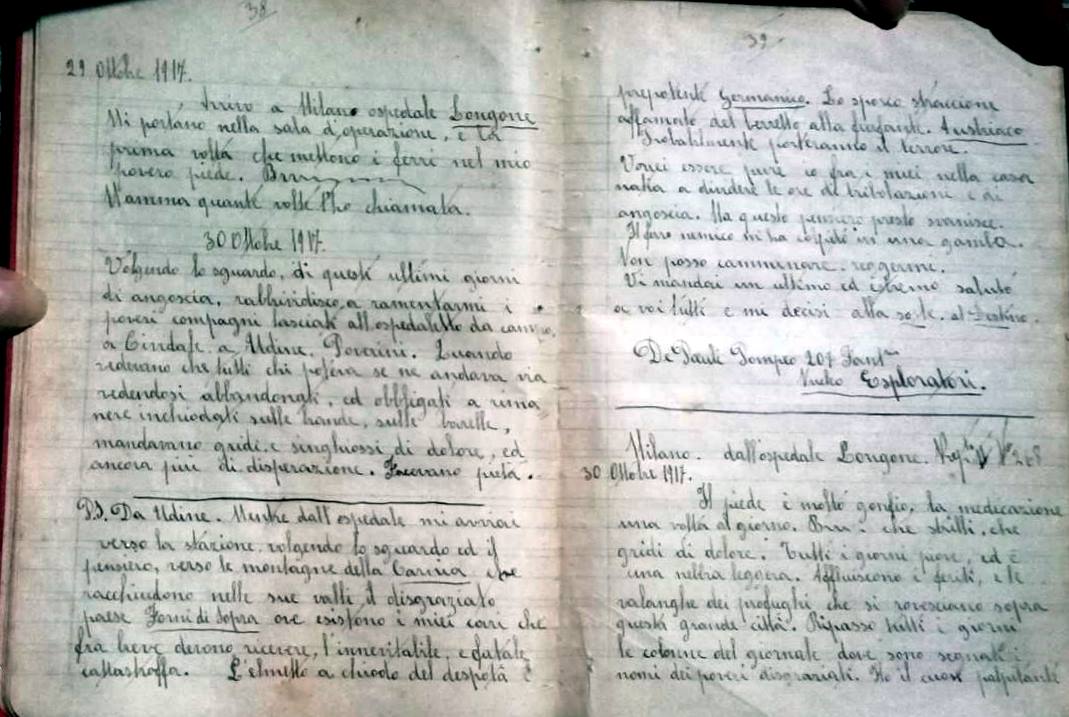 38
29 Ottobre 1917.
Arrivo a Milano ospedale Longone
Mi portano nella sala d'operazione, è la
prima volta che mettono i ferri nel mio
povero piede. Brrr
Mamma quante volte l'ho chiamata.
30 Ottobre 1917.
Volgendo lo sguardo, di questi ultimi giorni
di angoscia, rabbividisco, a ramentarmi i
poveri compagni lasciati all'ospedaletto da campo,
a Cividale, a Udine. Poverini. Quando
vedevano che tutti chi poteva se ne andava via
vedendosi abbandonati, ed obbligati a rima
nere inchiodati sulle brande, sulle barelle,
mandavano gridi e singhiossi di dolore, ed
ancora più di disperazione. Facevano pietà.
P.S. Da Udine. Mentre dall'ospedale mi avviai
verso la stazione, volgendo lo sguardo ed il
pensiero, verso le montagne della Carnia che
racchiudono nelle sue valli il disgraziato
paese Forni di Sopra ove esistono i miei cari che
fra breve devono ricevere, l'innevitabile, e fatale
cattastroffa. L'elmetto a chiodo del despota e
39
prepotente Germanico. Lo sporco straccione
affamato del berretto alla furfante. Austriaco
Probabilmente porteranno il terrore.
Vorrei essere pure io fra i miei nella casa
natia a dividere le ore di tribolazioni e di
angoscia. Ma questo pensiero presto svanisce.
Il fero nemico mi ha colpito in una gamba.
Non posso camminare, reggermi.
Vi mandai un ultimo ed estremo saluto
a voi tutti e mi decisi alla sorte, al Destino.
De Pauli Pompeo 207 Fant.
Nucleo Esploratori.
Milano. dall'ospedale Longone.
30 Ottobre 1917.
Il piede è molto gonfio, la medicazione
una volta al giorno. Brrr. che strilli, che
gridi di dolore. Tutti i giorni piove, ed è
una nebbia leggera. Affluiscono i feriti, e le
valanghe dei profughi, che si rovesciano sopra
questa grande città. Ripasso tutti i giorni
le colonne del giornale dove sono segnati i
nomi dei poveri disgraziati. Ho il cuore palpitante